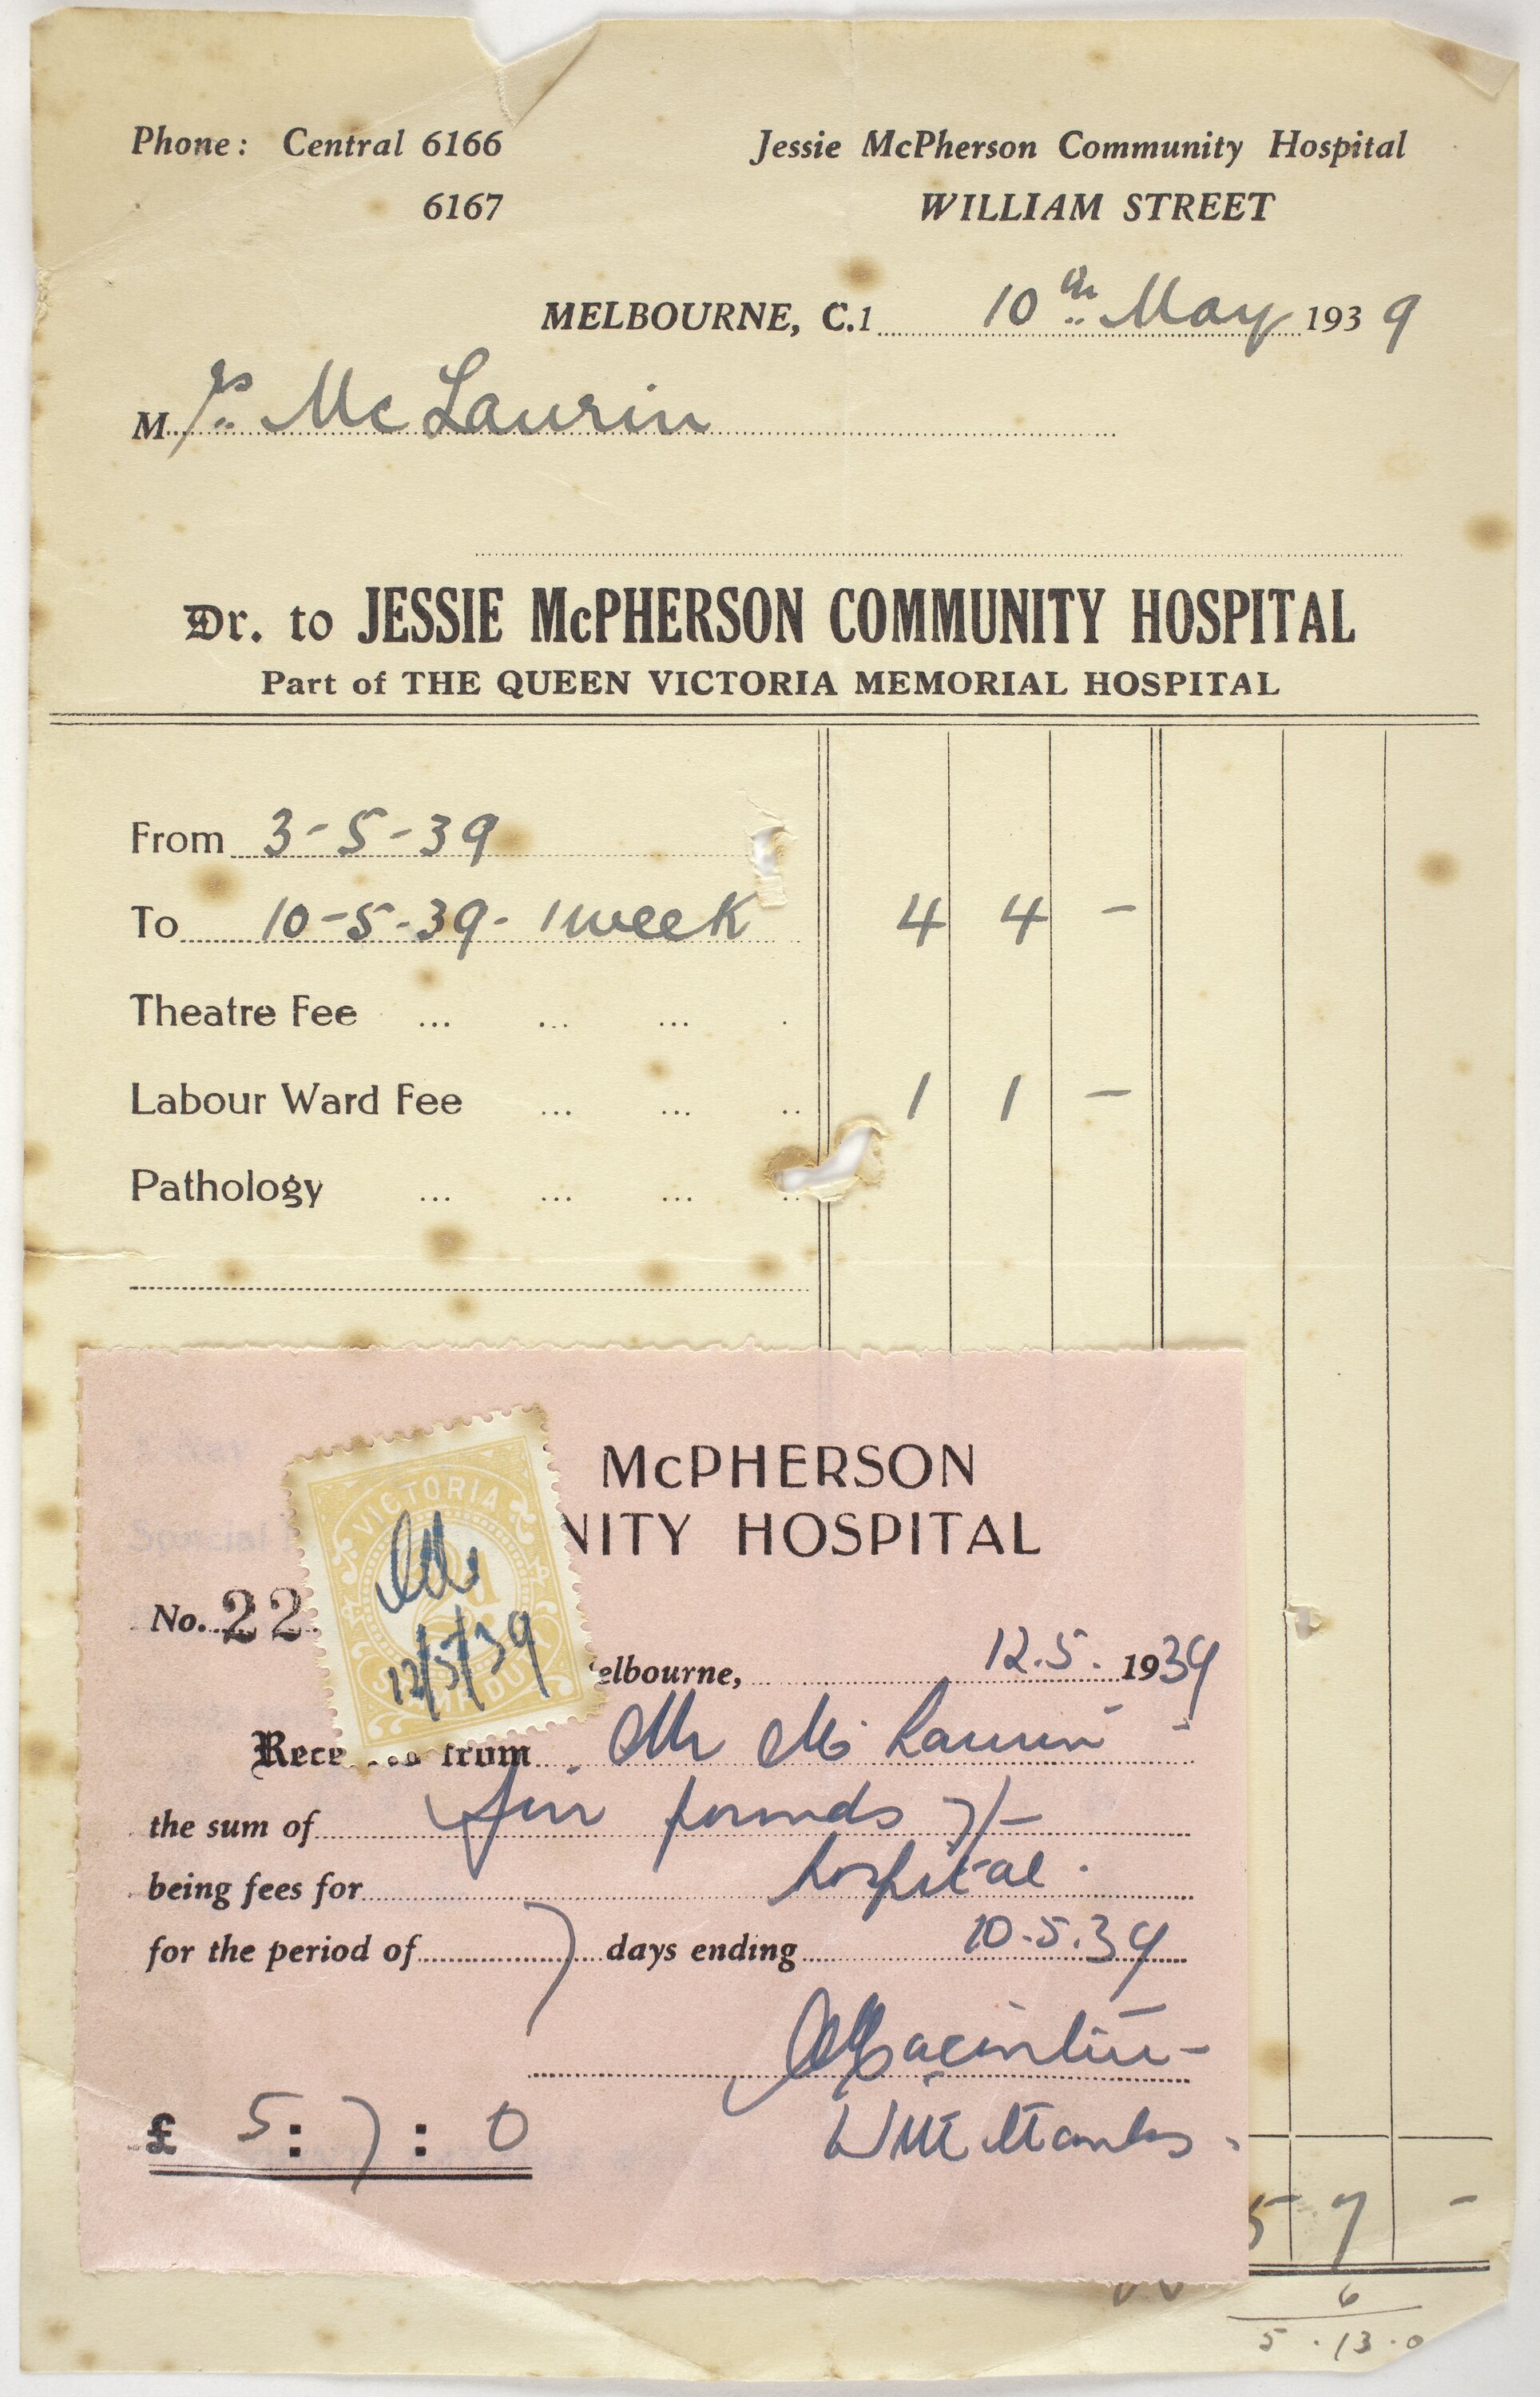 Phone: Central 6166 Jessie McPherson Community Hospital
6167 WILLIAM STREET
MELBOURNE, C.1 10th May 1939
Mrs McLaurin
Dr. to JESSIE McPHERSON COMMUNITY HOSPITAL
Part of THE QUEEN VICTORIA MEMORIAL HOSPITAL
From 3-5-39
To 10-5-39- 1 week 4 4 -
Theatre Fee ... ... ...
Labour Ward Fee ... ... .. 1 1 -
Pathology ... ... ... ..
McPHERSON
NITY HOSPITAL
VICTORIA
12/5/39
No. 22
elbourne, 12.5. 1939
Rece from Mr McLaurin
the sum of five pounds 7/-
being fees for hospital.
for the period of 7 days ending 10.5.39
With thanks.
£ 5 : 7 : 0
5 7 -
6
5 . 13 . 0